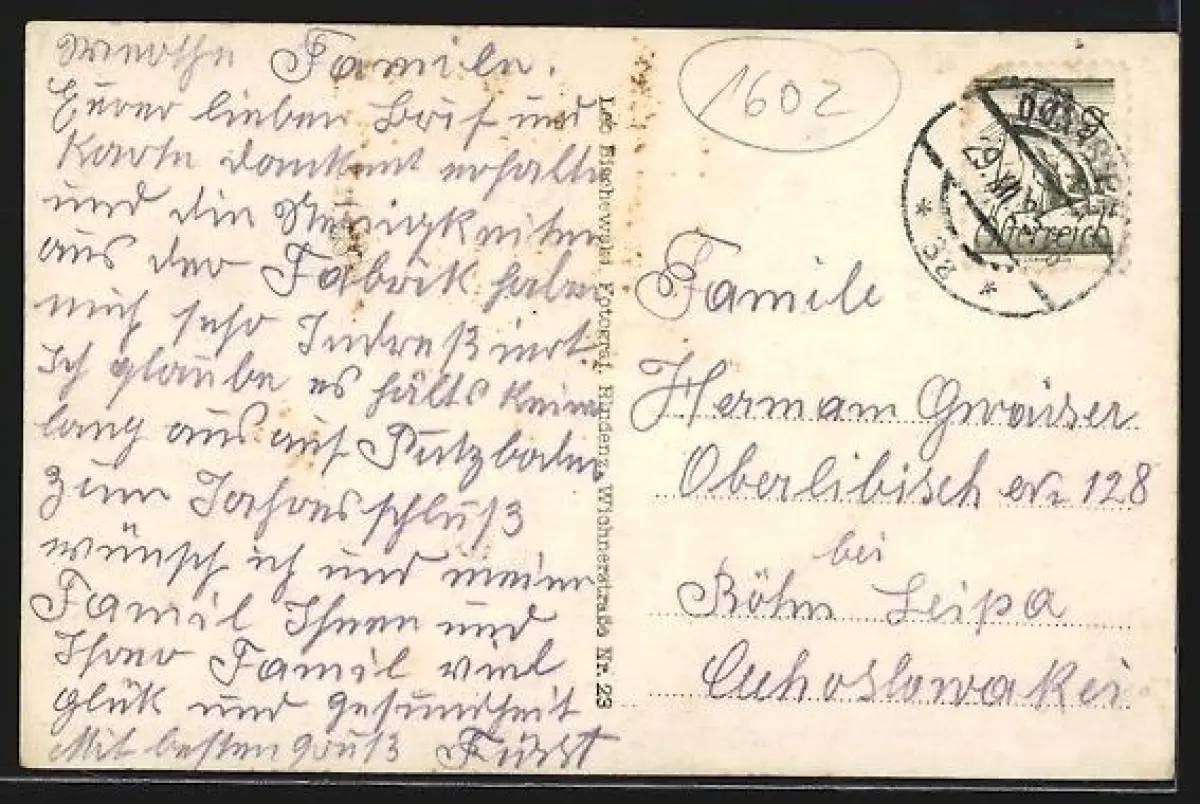 Werthe Familn.
Eurer lieben Brif und
Karte dankent erhalten
und die Neuigkeiten
aus der Fabrik haben
mich sehr Indreßiert.
Ich glaube es hälts keiner
lang aus auf
zum Jahresschluß
wünsch ich und meine
Famil Ihnen und
Ihrer Famil viel
glük und gesundheit
Mit besten gruß Fürst
Leo Eischewphl. Fotograf. Hirdenz, Wichnerstraße Nr. 23
1602
29.XII
Österreich
Familie
Hermann Gwaiser
Oberlibisch Nr 128
bei
Böhm Leipa
Cechoslowakei